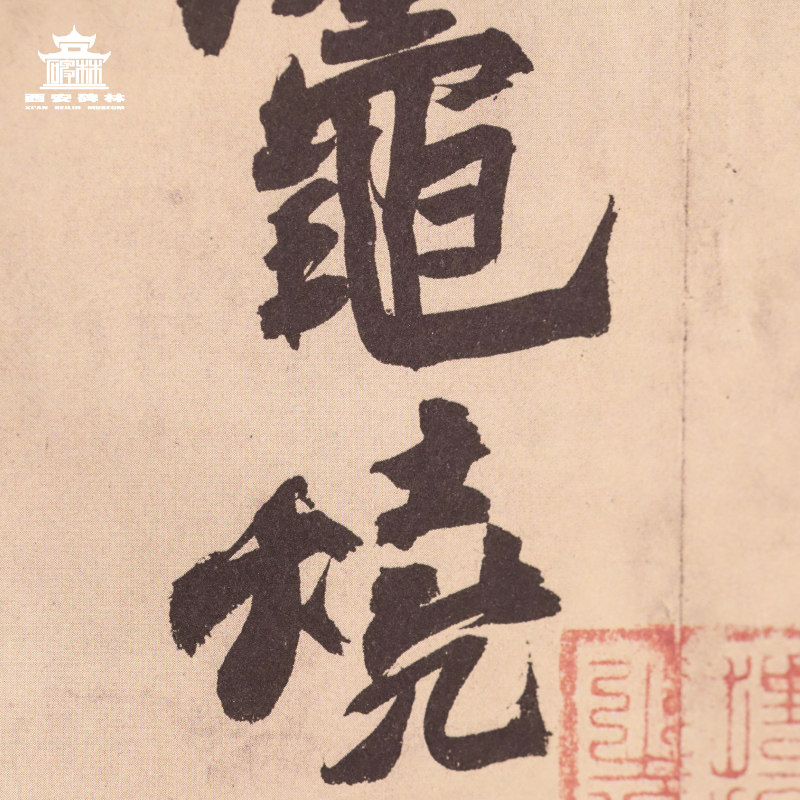 西安碑林
XI'AN BEILIN MUSEUM
竈
燒